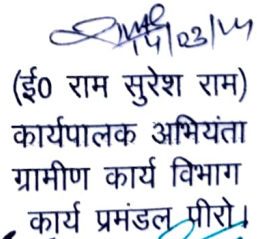 14/03/14
(ई० राम सुरेश राम)
कार्यपालक अभियंता
ग्रामीण कार्य विभाग
कार्य प्रमंडल, पीरो।